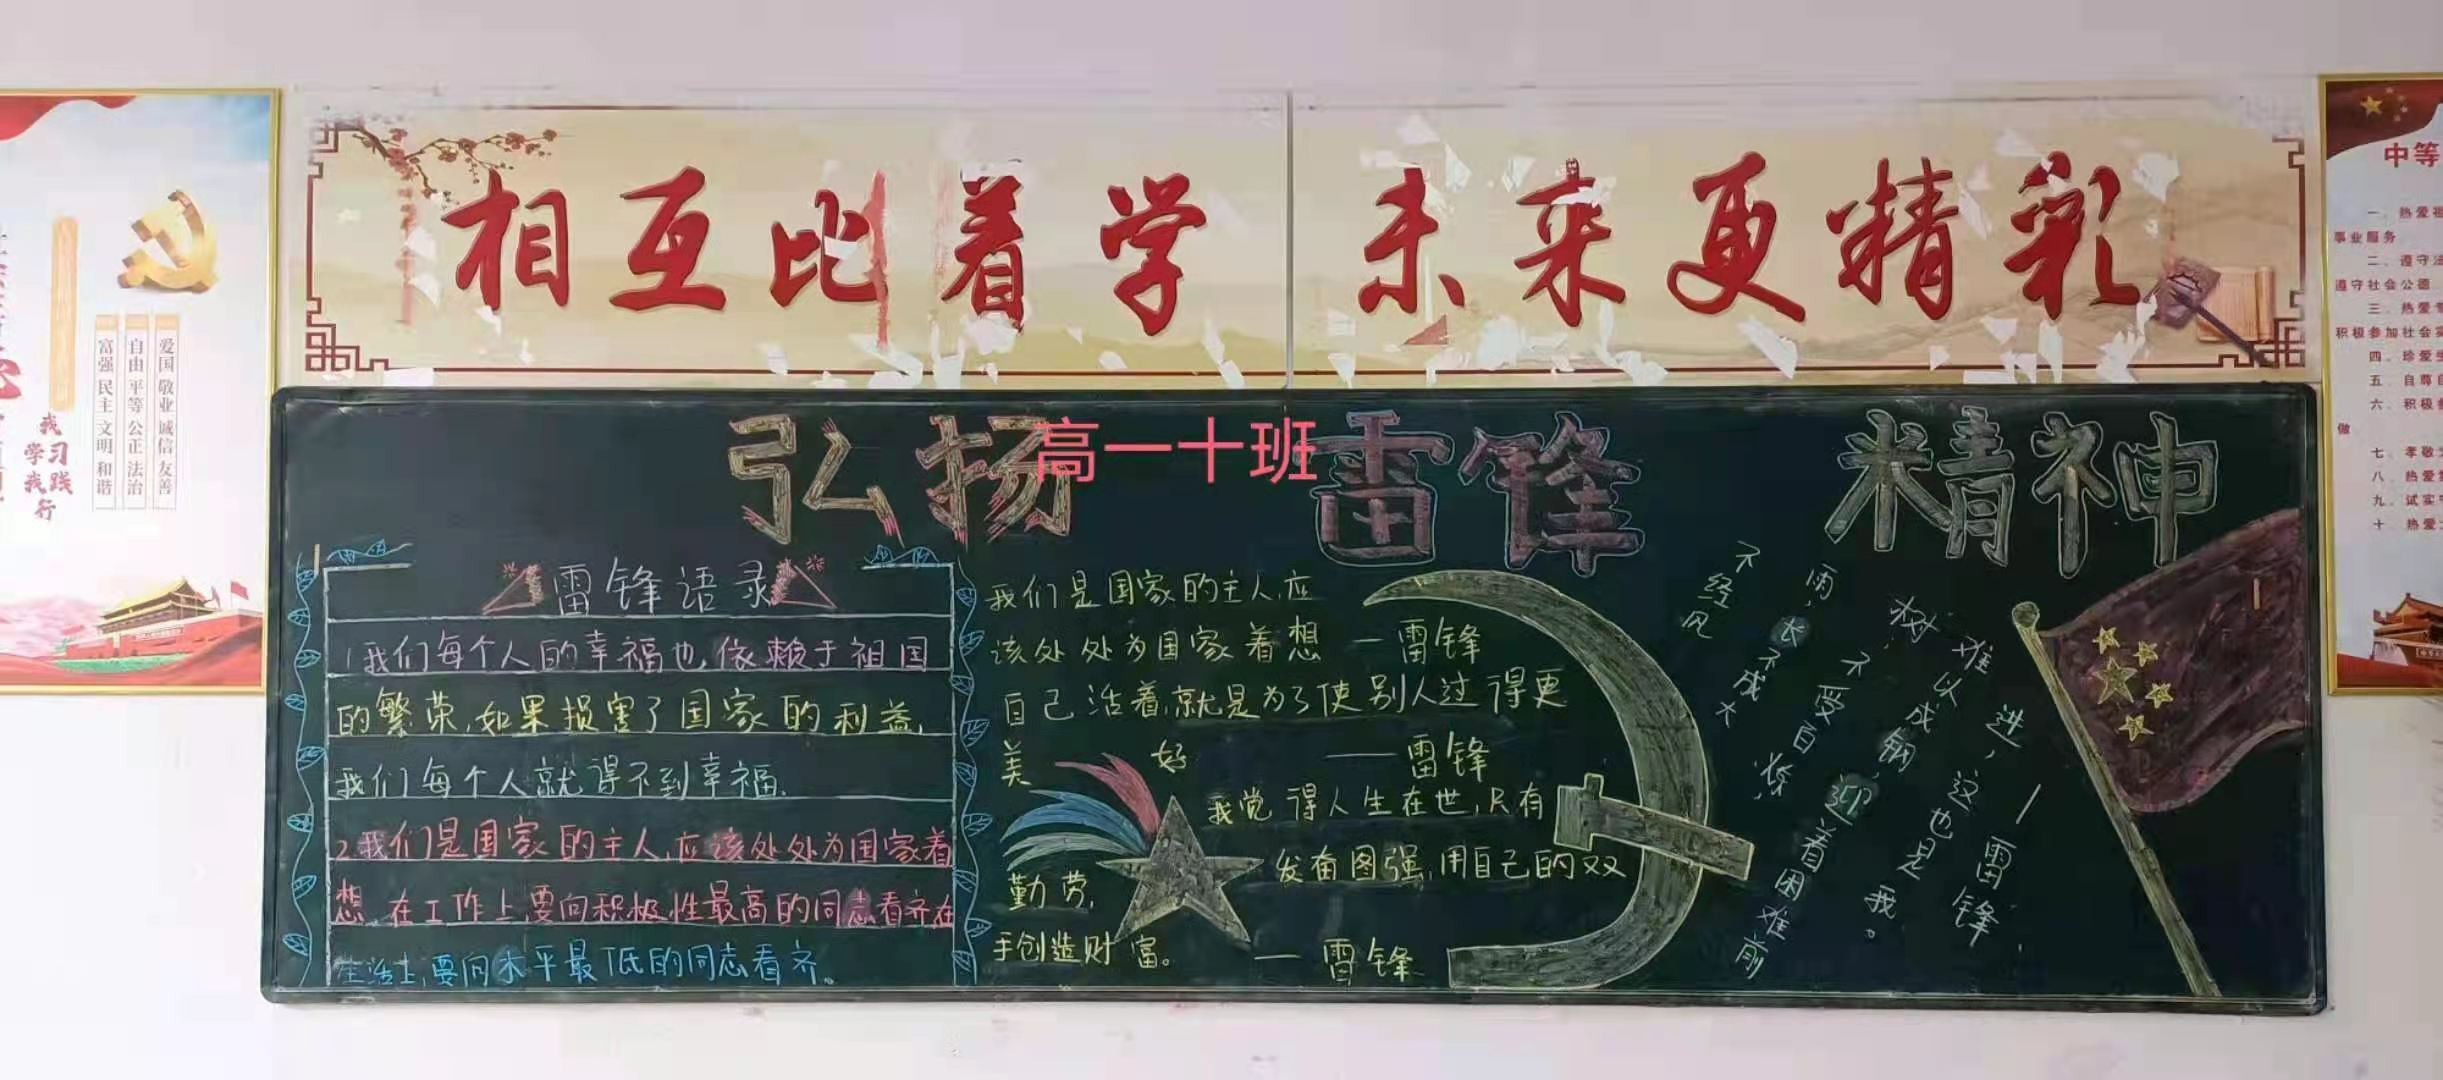 相互比着学
未来更精彩
爱国 敬业 诚信 友善
自由 平等 公正 法治
富强 民主 文明 和谐
我
学习
我践
行
弘扬
高一十班
雷锋
精神
雷锋语录
1我们每个人的幸福也依赖于祖国
的繁荣,如果损害了国家的利益,
我们每个人就得不到幸福.
2.我们是国家的主人,应该处处为国家着
想.在工作上,要向积极性最高的同志看齐在
生活上,要向水平最低的同志看齐。
我们是国家的主人,应
该处处为国家着想 —雷锋
自己活着,就是为了使别人过得更
美 好 ——雷锋
我觉得人生在世,只有
勤劳,
发奋图强,用自己的双
手创造财富。 —雷锋
不经风
雨,长不成大
树,不受百炼,
难以成钢,迎着困难前
进,这也是我。
—雷锋
中等
一、热爱祖
事业服务
二、遵守法
遵守社会公德
三、热爱专
积极参加社会实
四、珍爱生
五、自尊自
六、积极参
做
七、孝敬父
八、热爱集
九、试实守
十、热爱大